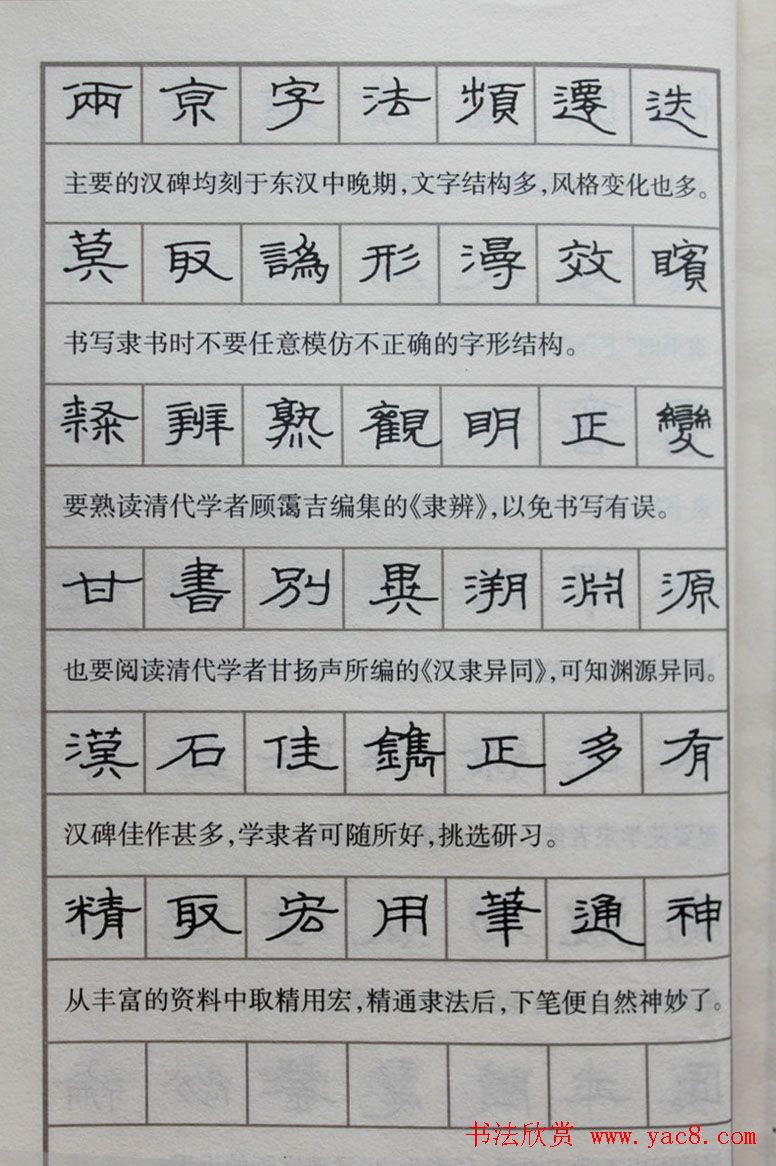 兩京字法頻遷迭
主要的汉碑均刻于东汉中晚期，文字结构多，风格变化也多。
莫取譌形漫效矉
书写隶书时不要任意模仿不正确的字形结构。
隸辨熟觀明正變
要熟读清代学者顾霭吉编集的《隶辨》，以免书写有误。
甘書別異溯淵源
也要阅读清代学者甘扬声所编的《汉隶异同》，可知渊源异同。
漢石佳鐫正多有
汉碑佳作甚多，学隶者可随所好，挑选研习。
精取宏用筆通神
从丰富的资料中取精用宏，精通隶法后，下笔便自然神妙了。
书法欣赏 www.yac8.com